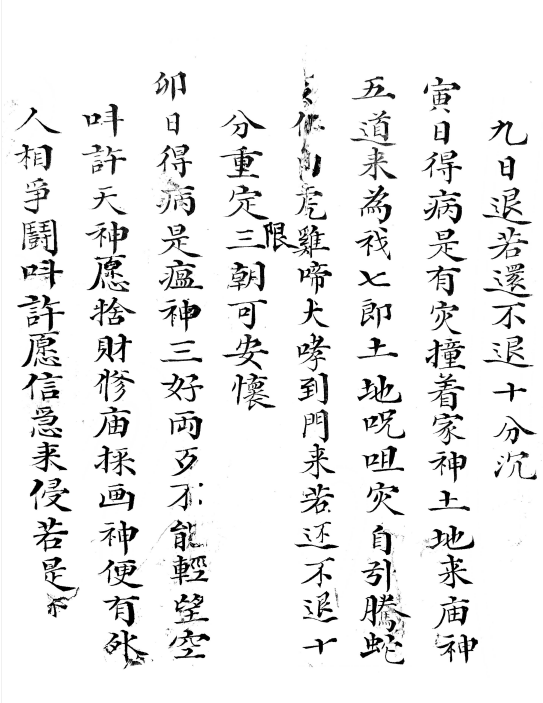 九日退若還不退十分沉
寅日得病是有灾撞着家神土地来庙神
五道来為祆七即土地咒咀灾自引騰蛇
虎雞啼犬哮到門来若还不退十
限
分重定三朝可安懷
卯日得病是瘟神三好両歹不能輕望空
呌許天神愿捨財修庙採画神便有
人相爭鬪呌許愿信急来侵若是不